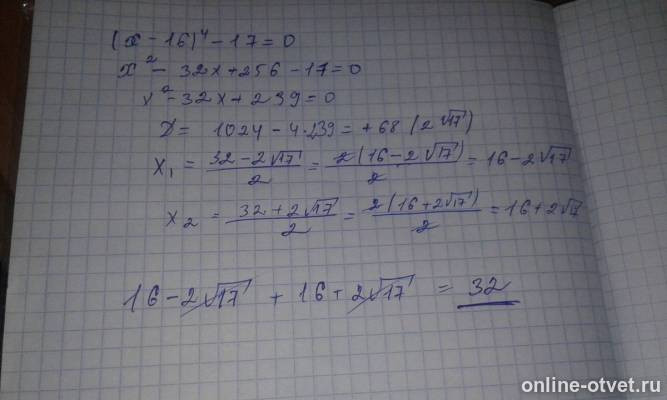 (x - 16)⁴ - 17 = 0
x² - 32x + 256 - 17 = 0
x² - 32x + 239 = 0
D = 1024 - 4·239 = +68 (2√17)
x₁ = (32 - 2√17)/2 = 2(16 - 2√17)/2 = 16 - 2√17
x₂ = (32 + 2√17)/2 = 2(16 + 2√17)/2 = 16 + 2√17
16 - 2√17 + 16 + 2√17 = 32
online-otvet.ru